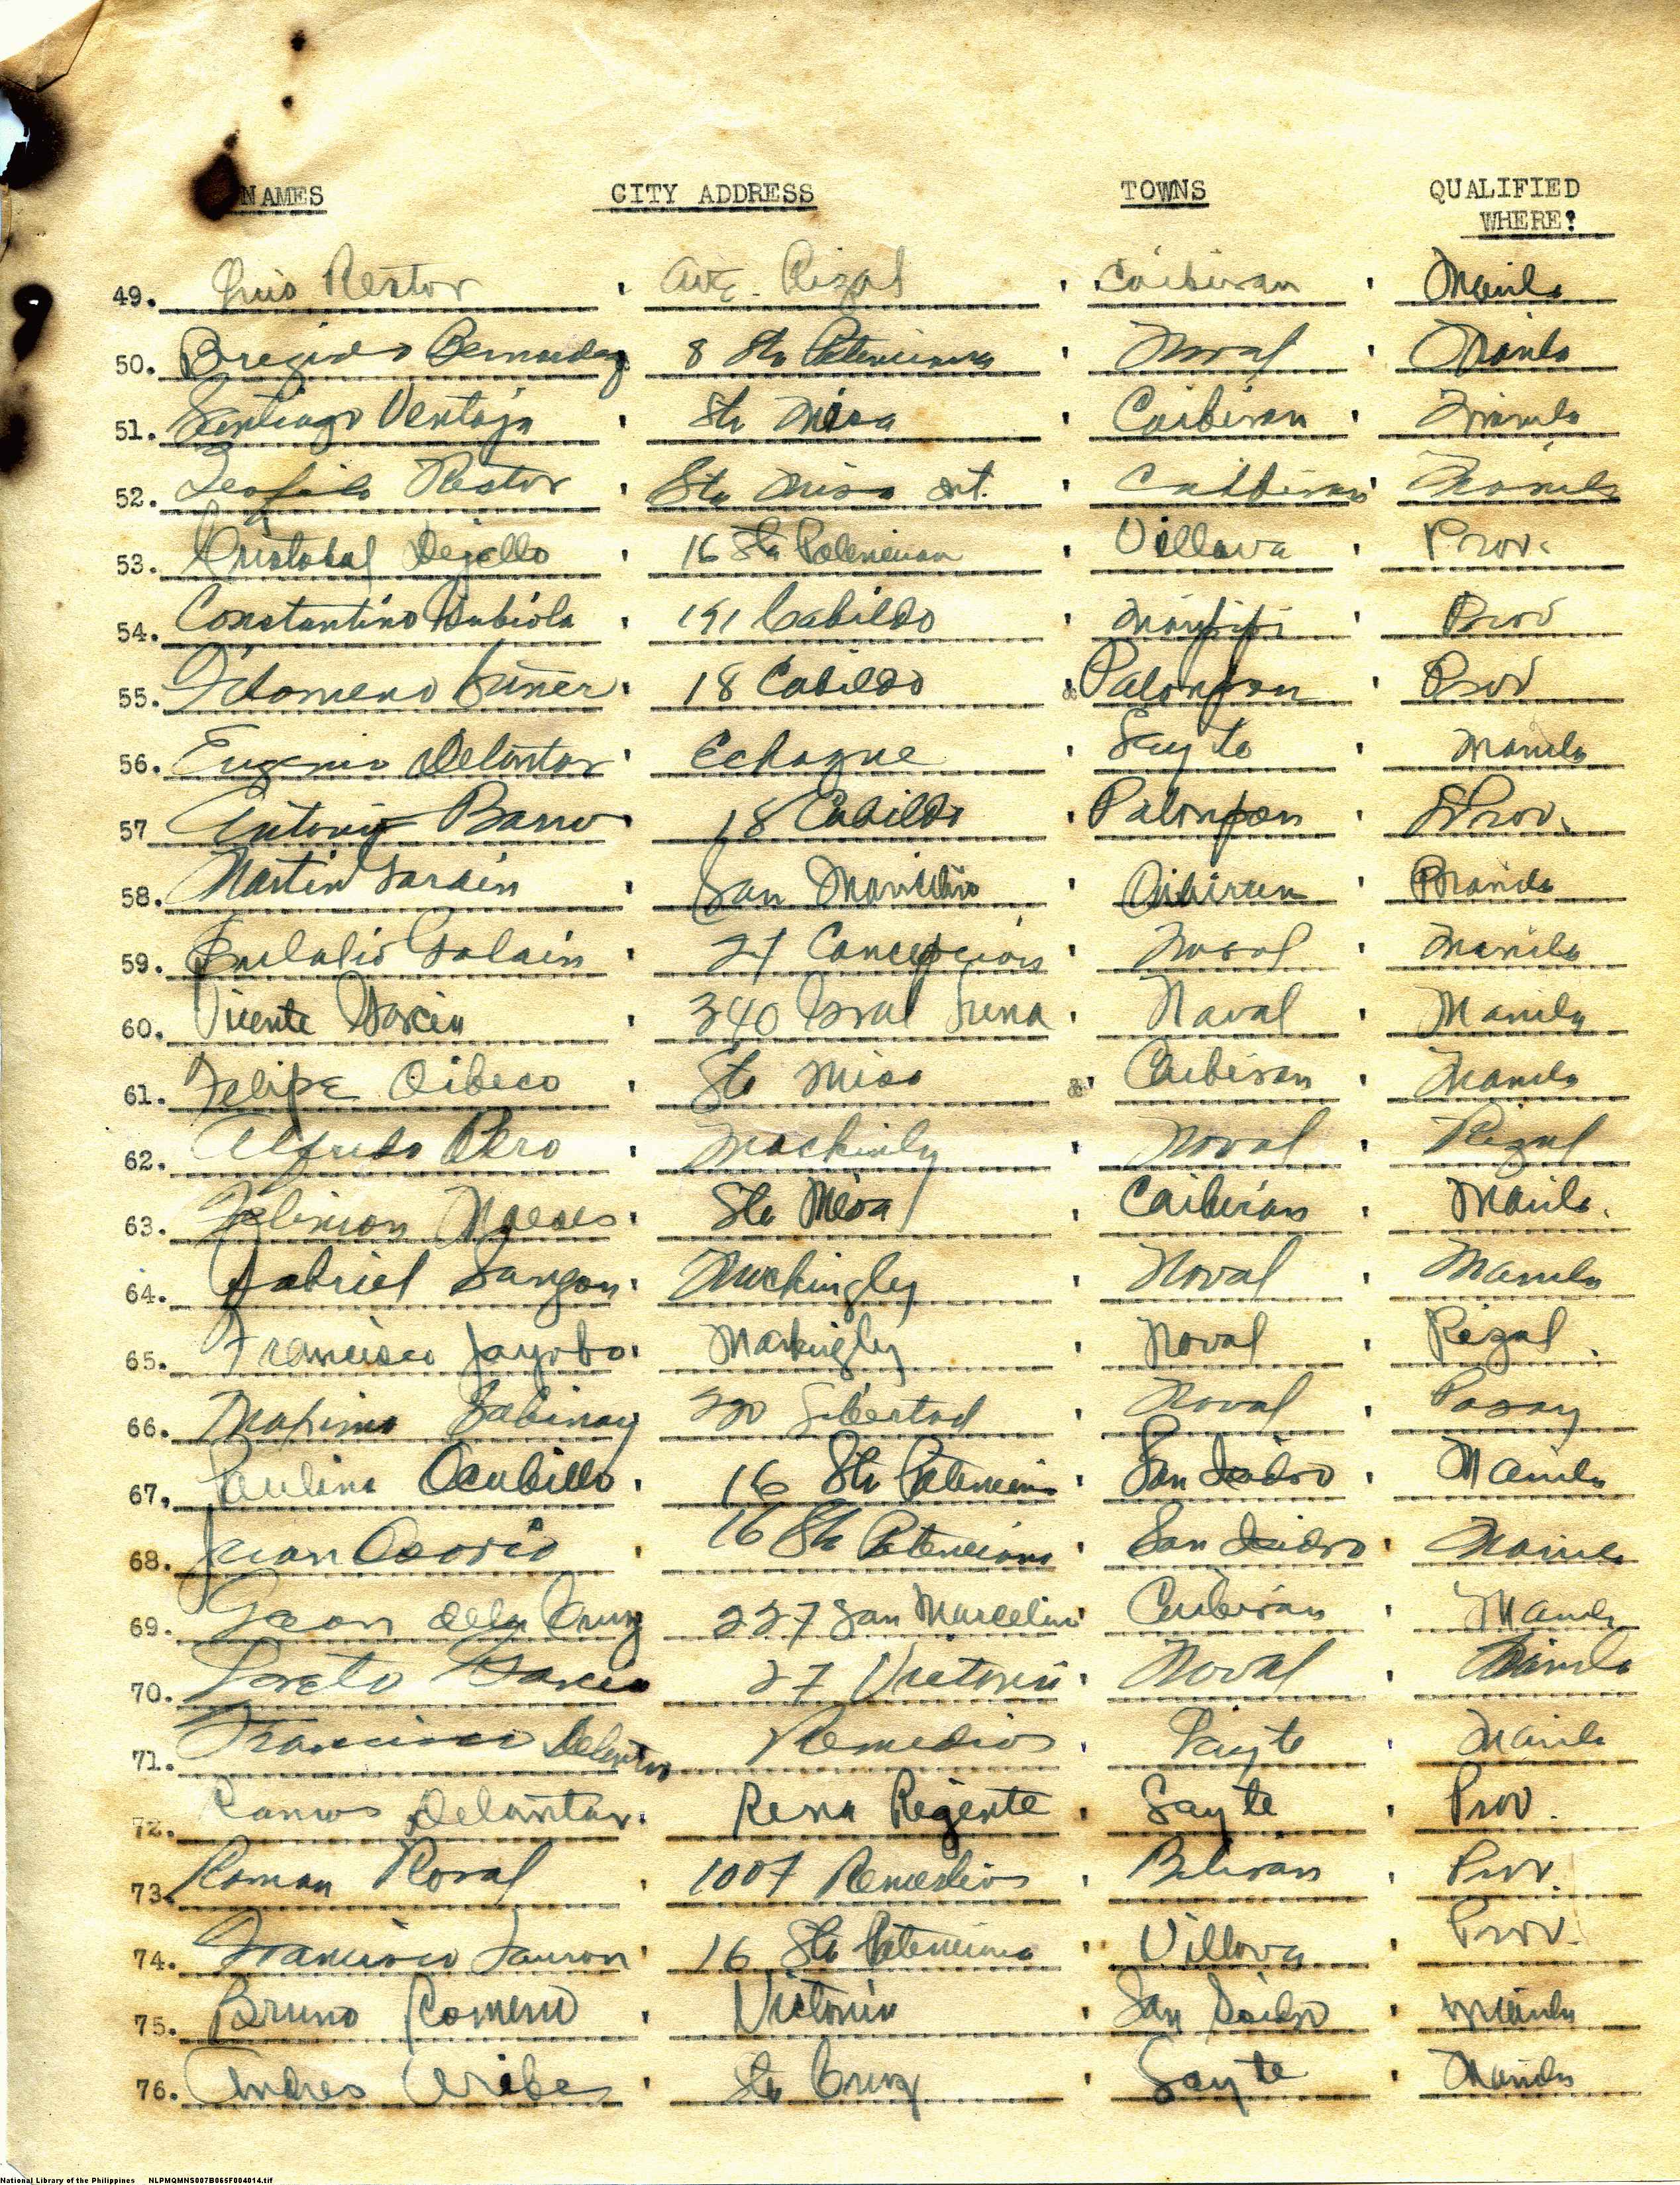 NAMES CITY ADDRESS TOWNS QUALIFIED
WHERE?
49. Luis Restor Ave. Rizal Caibiran Manila
50. Brigido Bernadez 8 Sta Potenciana Naval Manila
51. Santiago Ventaja Sta Mesa Caibiran Manila
52. Teofilo Restor Sta Mesa Ext. Caibiran Manila
53. Cristobal Dejello 16 Sta Potenciana Villava Prov.
54. Constantino Dubiola 191 Cabildo Maripipi Prov
55. Filomeno 18 Cabildo Palompon Prov
56. Eugenio Delantar Echague Leyte Manila
57 Antonio Barro 18 Cabildo Palompon Prov.
58. Martin Garain San Marcelino Caibiran Manila
59. Eulalio Galain 27 Concepcion Naval Manila
60. Vicente Garcia 340 Gral Luna Naval Manila
61. Felipe Oibeco Sta Mesa Caibiran Manila
62. Alfredo Mackinly Naval Rizal
63. Felimon Sta Mesa Caibiran Manila.
64. Gabriel Sangon Mackingley Naval Manila
65. Francisco Jayobo Mackingley Naval Rizal
66. Maximo Sabinay 220 Libertad Naval Pasay
67. Paulino Ocubillo 16 Sta Potenciana San Isidro Manila
68. Juan Osorio 16 Sta Potenciana San Isidro Manila
69. Geon dela Cruz 227 San Marcelino Caibiran Manila
70. Loreto Garcia 27 Victoria Naval Manila
71. Francisco Delantar Remedios Leyte Manila
72. Ramos Delantar Reina Regente Leyte Prov.
73. Roman Roval 1007 Remedios Biliran Prov.
74. Francisco Lauron 16 Sta Potenciana Villava Prov.
75. Bruno Romero Victoria San Isidro Manila
76. Andres Uribe Sta Cruz Leyte Manila
National Library of the Philippines NLPMQMNS007B065F004014.tif